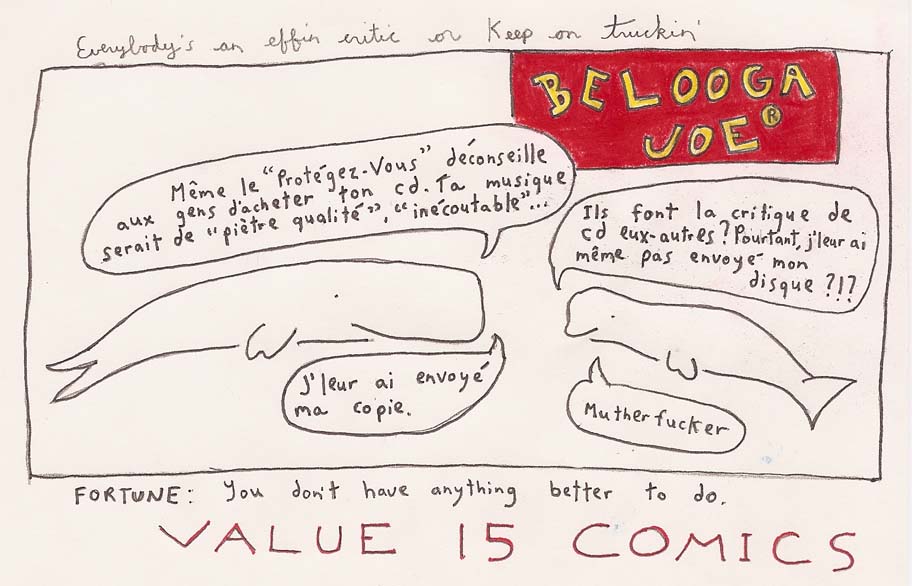 Everybody's an effin critic or Keep on truckin'
BELOOGA
JOE®
Même le "Protégez-Vous" déconseille
aux gens d'acheter ton cd. Ta musique
serait de "piètre qualité", "inécoutable"...
Ils font la critique de
cd eux-autres? Pourtant, j'leur ai
même pas envoyé mon
disque ?!?
J'leur ai envoyé
ma copie.
Mutherfucker
FORTUNE: You don't have anything better to do.
VALUE 15 COMICS